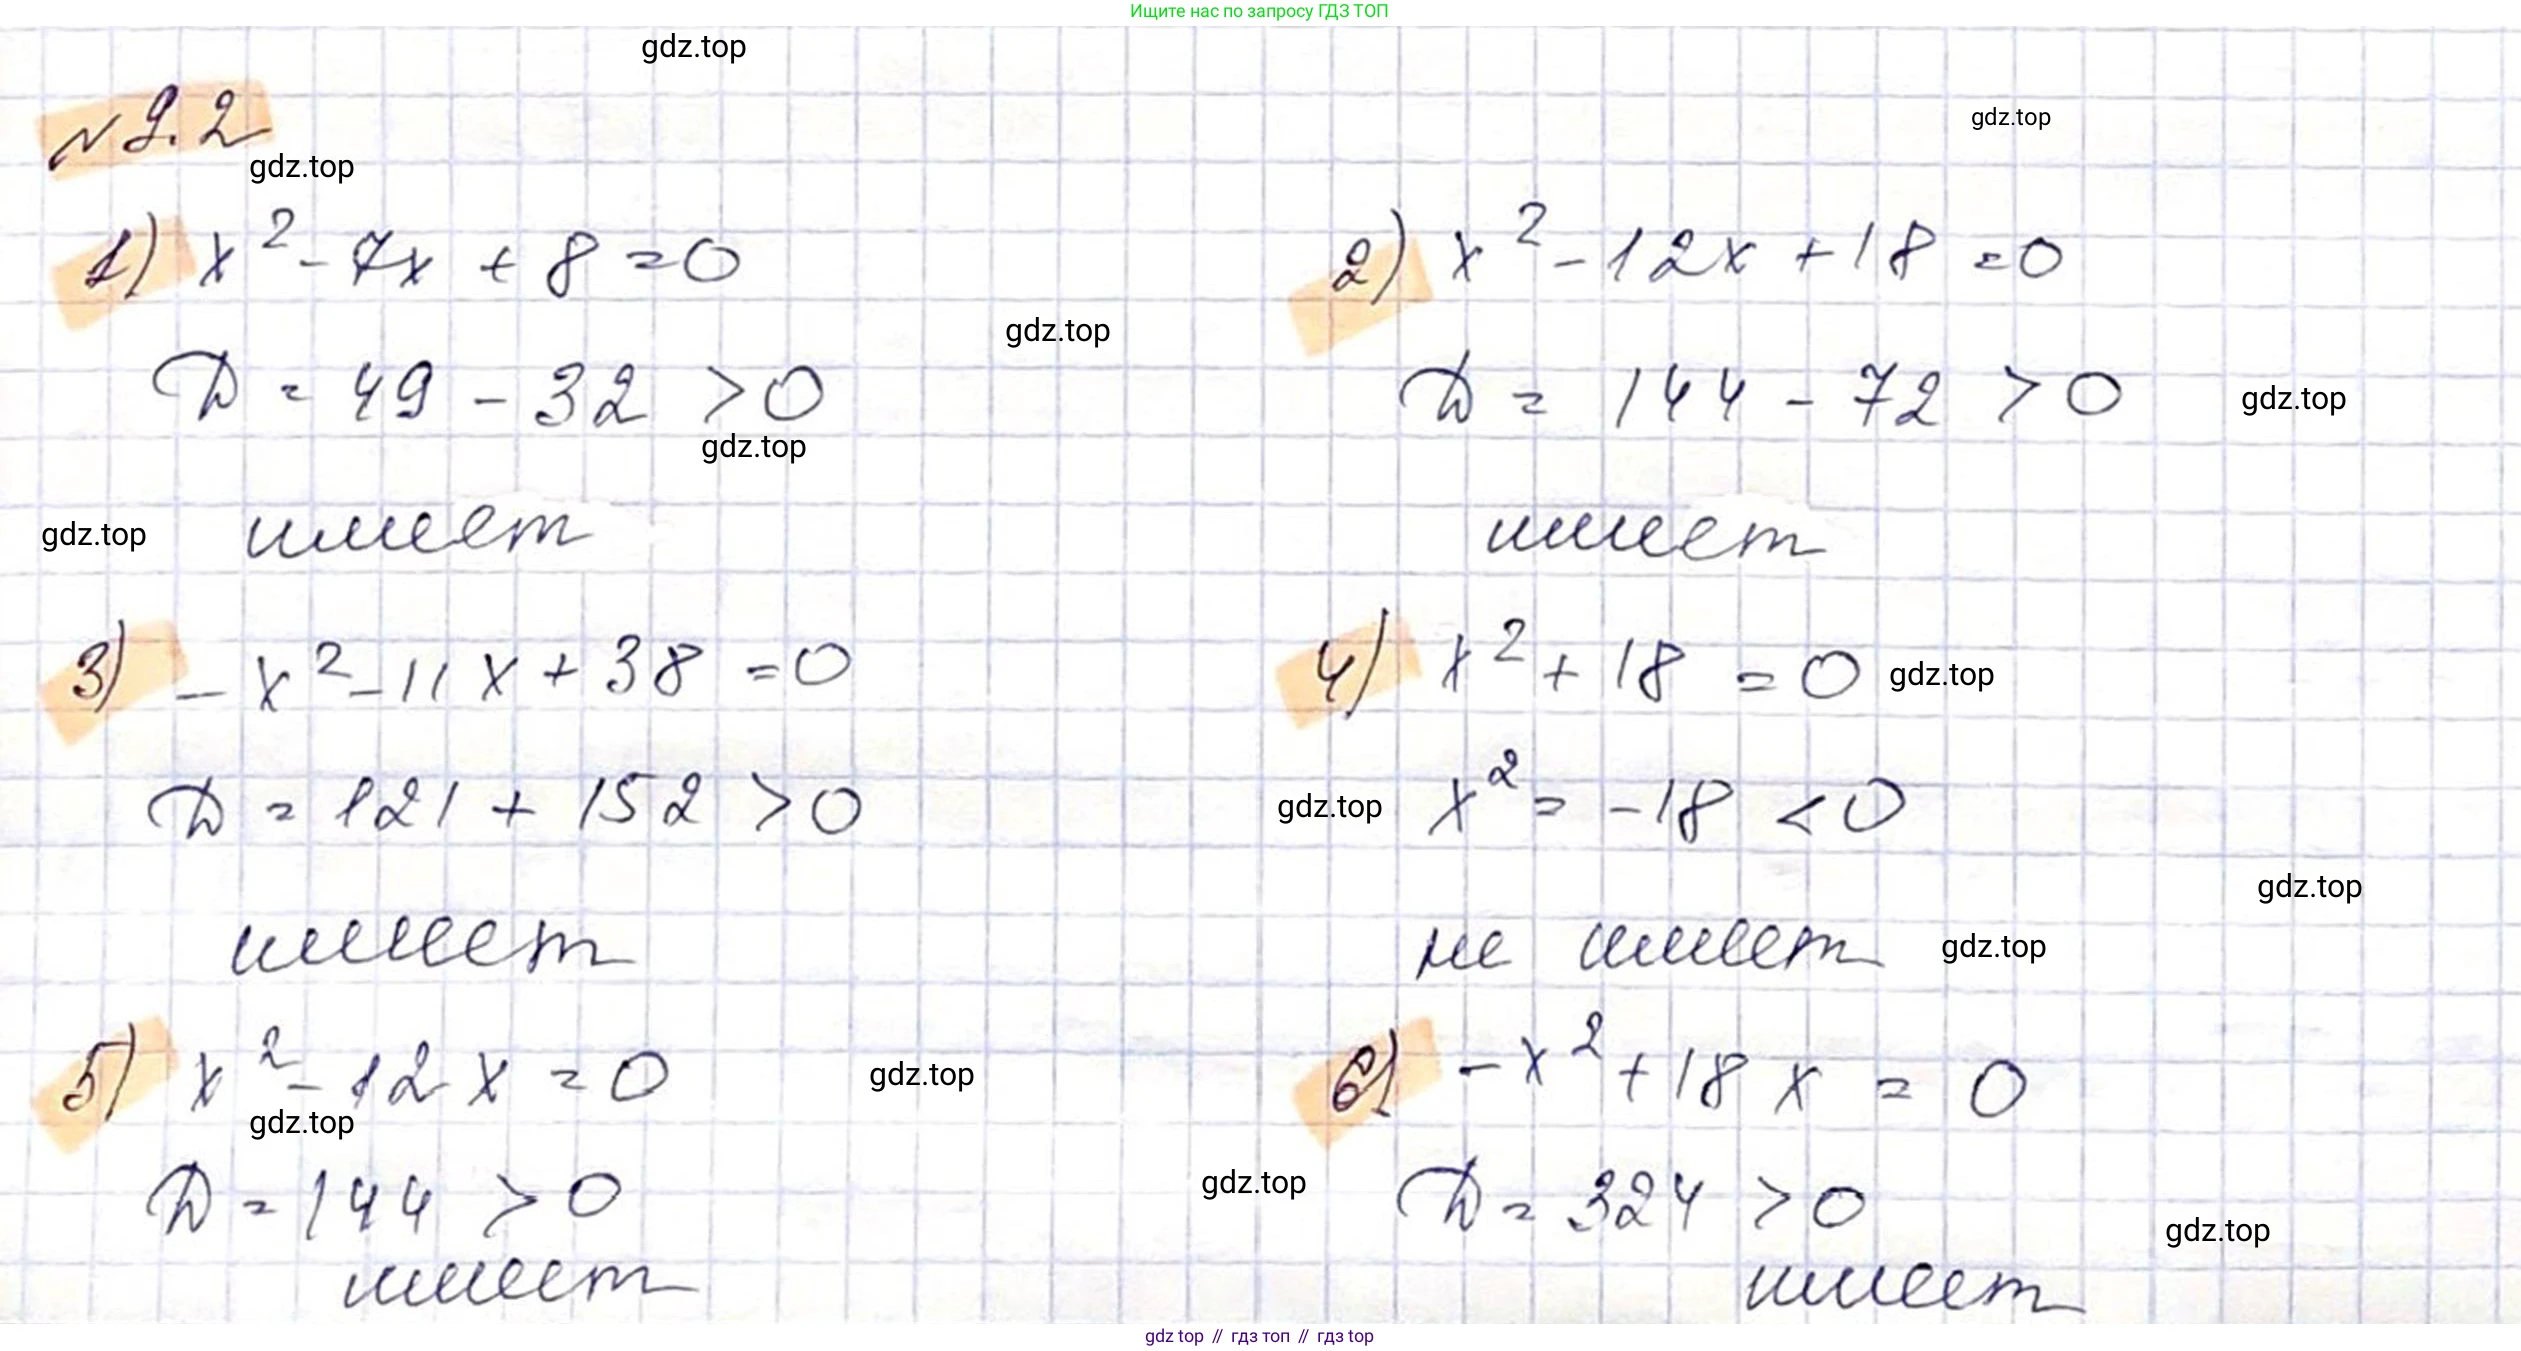 Ищите нас по запросу ГДЗ ТОП
gdz.top
№ 9.2
gdz.top
gdz.top
1) x² - 7x + 8 = 0
2) x² - 12x + 18 = 0
gdz.top
D = 49 - 32 > 0
D = 144 - 72 > 0
gdz.top
gdz.top
gdz.top
имеет
имеет
3) - x² - 11x + 38 = 0
4) x² + 18 = 0
gdz.top
D = 121 + 152 > 0
gdz.top
x² = -18 < 0
gdz.top
имеет
не имеет
gdz.top
5) x² - 12x = 0
gdz.top
6) -x² + 18x = 0
gdz.top
D = 144 > 0
gdz.top
D = 324 > 0
gdz.top
имеет
имеет
gdz top // гдз топ // гдз top